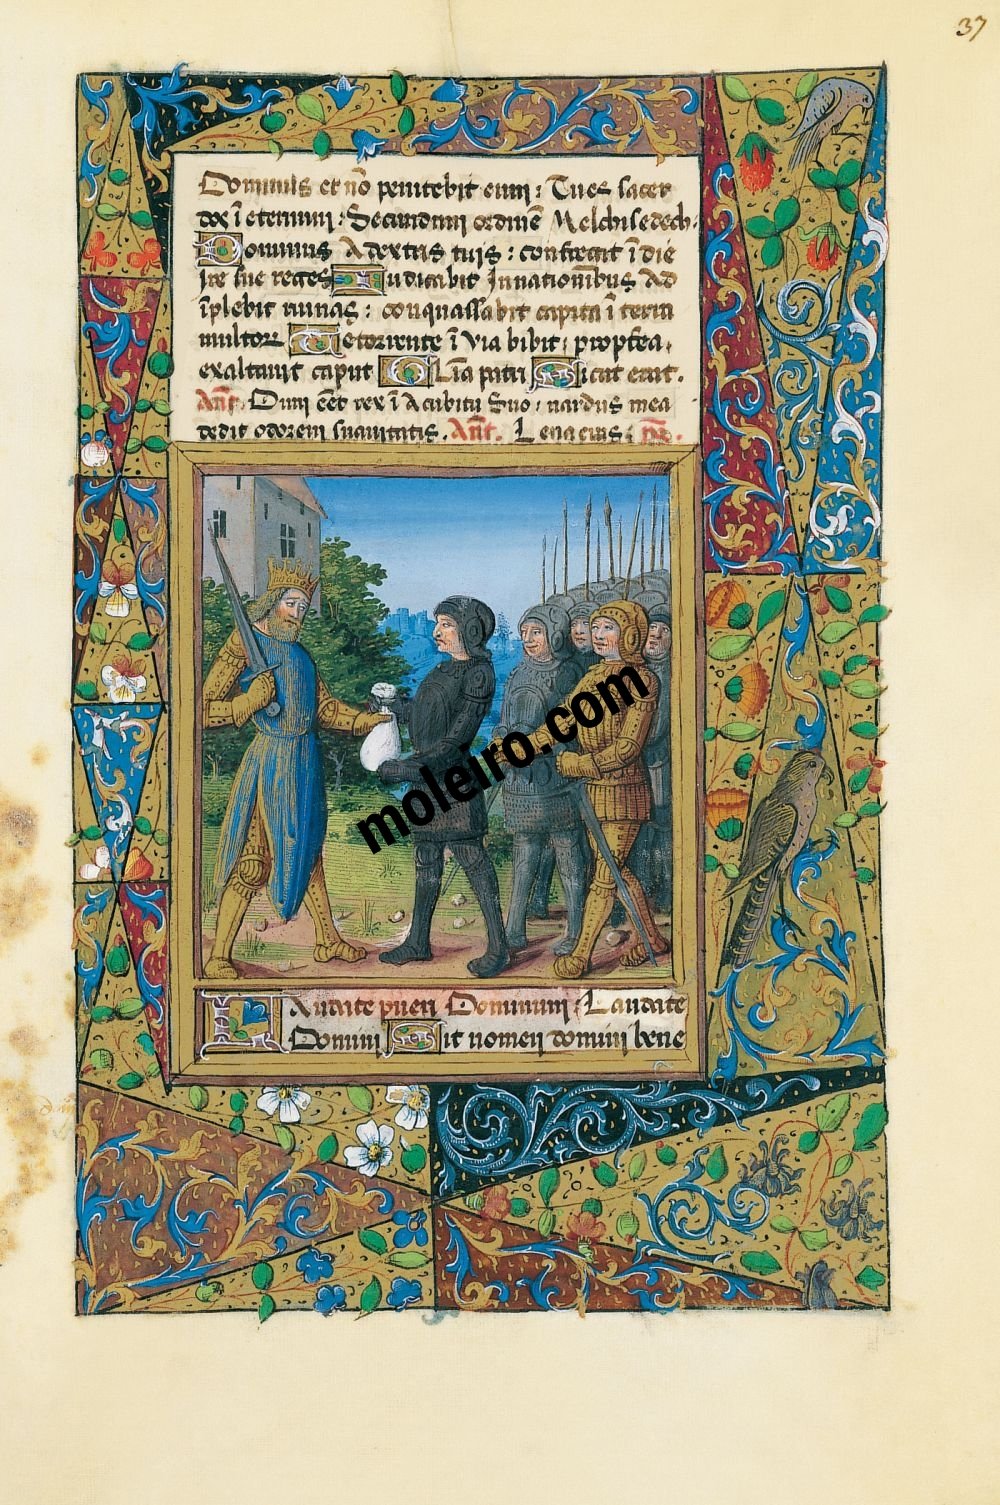 37
Dominus et nō penitebit eum : Tu es sacer
dox ī eternum : Secundum ordinē Melchisedech .
Dominus A dextris tuis : confregit ī die
ire sue reges Iudicabit In nationibus Ad
īplebit ruinas : conquassabit capita ī terra
multoꝝ De torrente ī via bibit , propťea .
exaltauit caput GLīa patri Sicut erat .
Añt . Dum eēt rex ī Acubitu Suo , nardus mea
dedit odorem suauitatis . Añt . Leua eius :
moleiro.com
LAudate pueri Dominum : Laudate
Domini Sit nomen domini bene